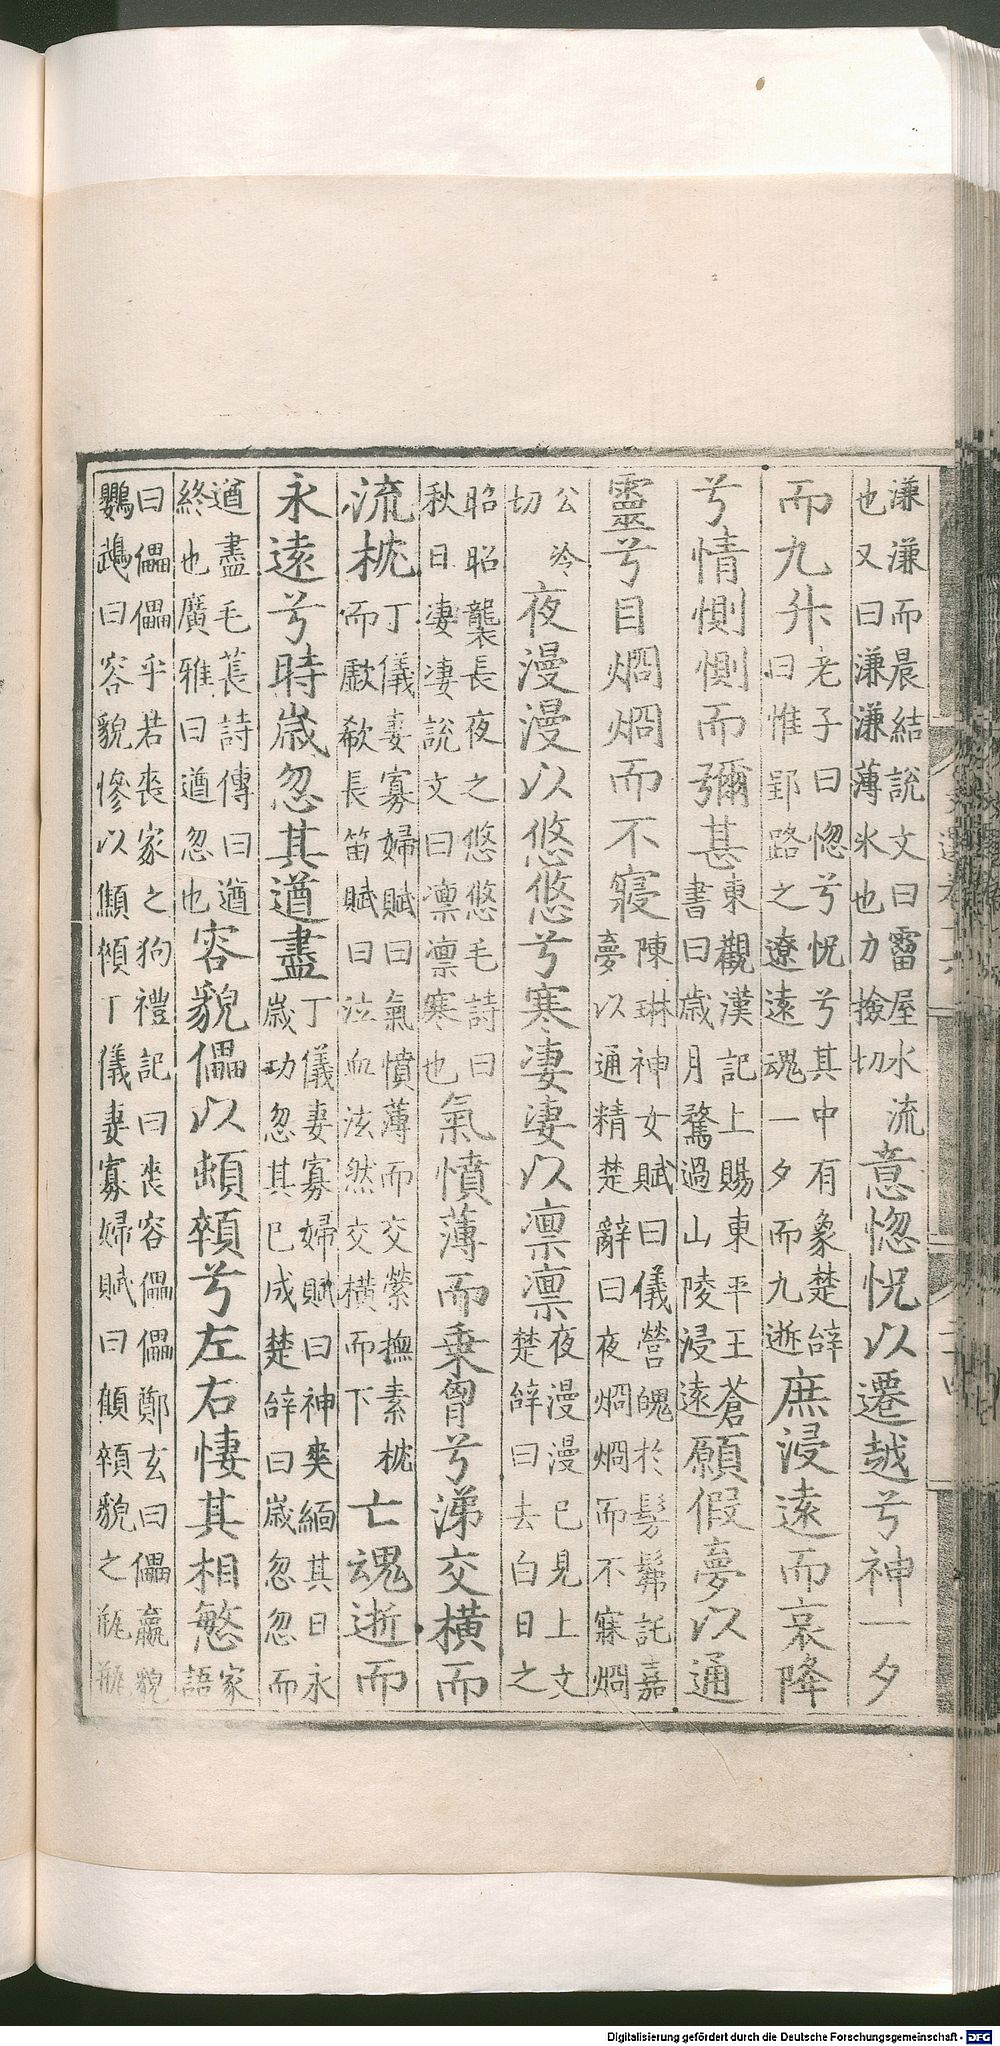 溓溓而晨結說文曰霤屋水流
也又曰溓溓薄冰也力撿切
意惚怳以遷越兮神一夕
而九升
老子曰惚兮怳兮其中有象楚辭
曰惟郢路之遼遠魂一夕而九逝
庶浸遠而哀降
兮情惻惻而彌甚
東觀漢記上賜東平王蒼
書曰歲月騖過山陵浸遠
願假夢以通
靈兮目烱烱而不寢
陳琳神女賦曰儀營魄於髣髴託嘉
夢以通精楚辭曰夜烱烱而不寐烱
公冷
切
夜漫漫以悠悠兮寒凄凄以凛凛
夜漫漫已見上文
楚辭曰去白日之
昭昭襲長夜之悠悠毛詩曰
秋日凄凄說文曰凛凛寒也
氣憤薄而乗胷兮涕交橫而
流枕
丁儀妻寡婦賦曰氣憤薄而交縈撫素枕
而歔欷長笛賦曰泣血泫然交橫而下
亡魂逝而
永遠兮時歲忽其遒盡
丁儀妻寡婦賦曰神爽緬其日永
歲功忽其已成楚辭曰歲忽忽而
遒盡毛萇詩傳曰遒
終也廣雅曰遒忽也
容貌儡以頓顇兮左右悽其相慜
家
語
曰儡儡乎若喪家之狗禮記曰喪容儡儡鄭玄曰儡羸貌
鸚鵡曰容貌慘以顦顇丁儀妻寡婦賦曰顧顇貌之
Digitalisierung gefördert durch die Deutsche Forschungsgemeinschaft - DFG